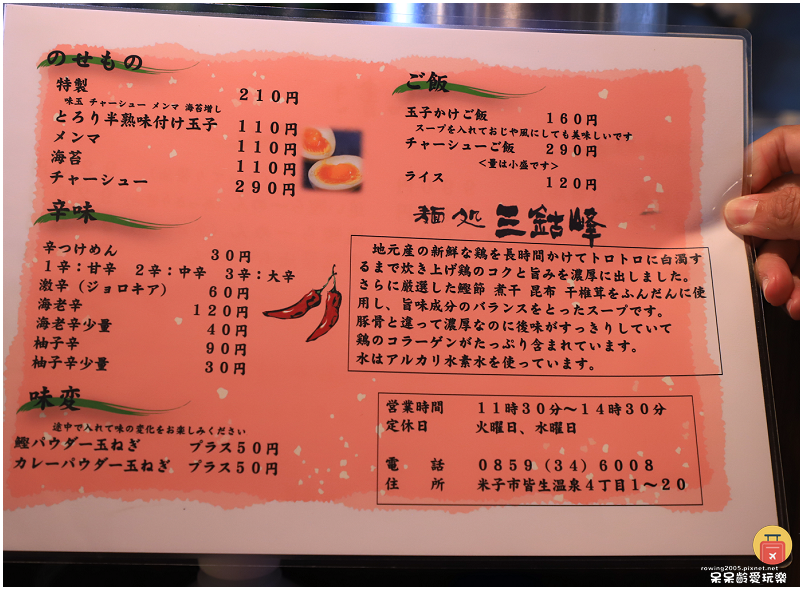 のせもの
特製 210円
味玉 チャーシュー メンマ 海苔増し
とろり半熟味付け玉子 110円
メンマ 110円
海苔 110円
チャーシュー 290円
辛味
辛つけめん 30円
1辛：甘辛 2辛：中辛 3辛：大辛
激辛（ジョロキア） 60円
海老辛 120円
海老辛少量 40円
柚子辛 90円
柚子辛少量 30円
味変
途中で入れて味の変化をお楽しみください
鰹パウダー玉ねぎ プラス50円
カレーパウダー玉ねぎ プラス50円
ご飯
玉子かけご飯 160円
スープを入れておじや風にしても美味しいです
チャーシューご飯 290円
<量は小盛です>
ライス 120円
麺処 三鈷峰
地元産の新鮮な鶏を長時間かけてトロトロに白濁す
るまで炊き上げ鶏のコクと旨みを濃厚に出しました。
さらに厳選した鰹節 煮干 昆布 干椎茸をふんだんに使
用し、旨味成分のバランスをとったスープです。
豚骨と違って濃厚なのに後味がすっきりしていて
鶏のコラーゲンがたっぷり含まれています。
水はアルカリ水素水を使っています。
営業時間 11時30分～14時30分
定休日 火曜日、水曜日
電話 0859（34）6008
住所 米子市皆生温泉4丁目1～20
rowing2005.pixnet.net
呆呆齡愛玩樂